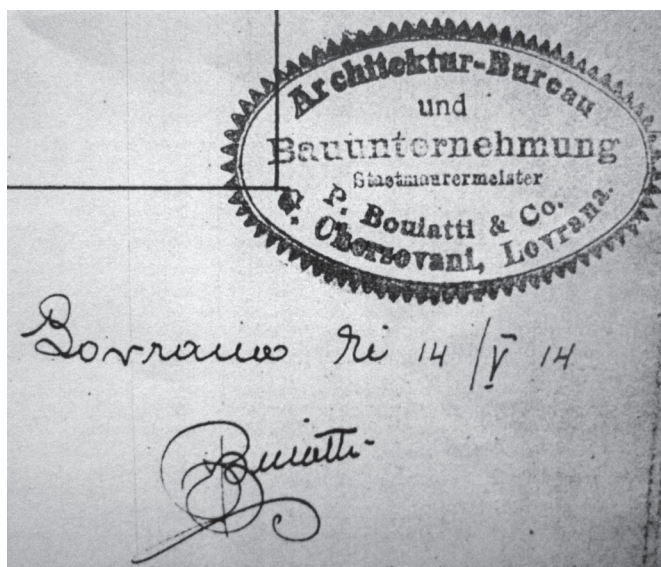 Architektur-Bureau
und
Bauunternehmung
Staatmaurermeister
P. Bouiatti & Co.
G. Obersovani, Lovrana.
Lovrana li 14/V 14
Buiatti